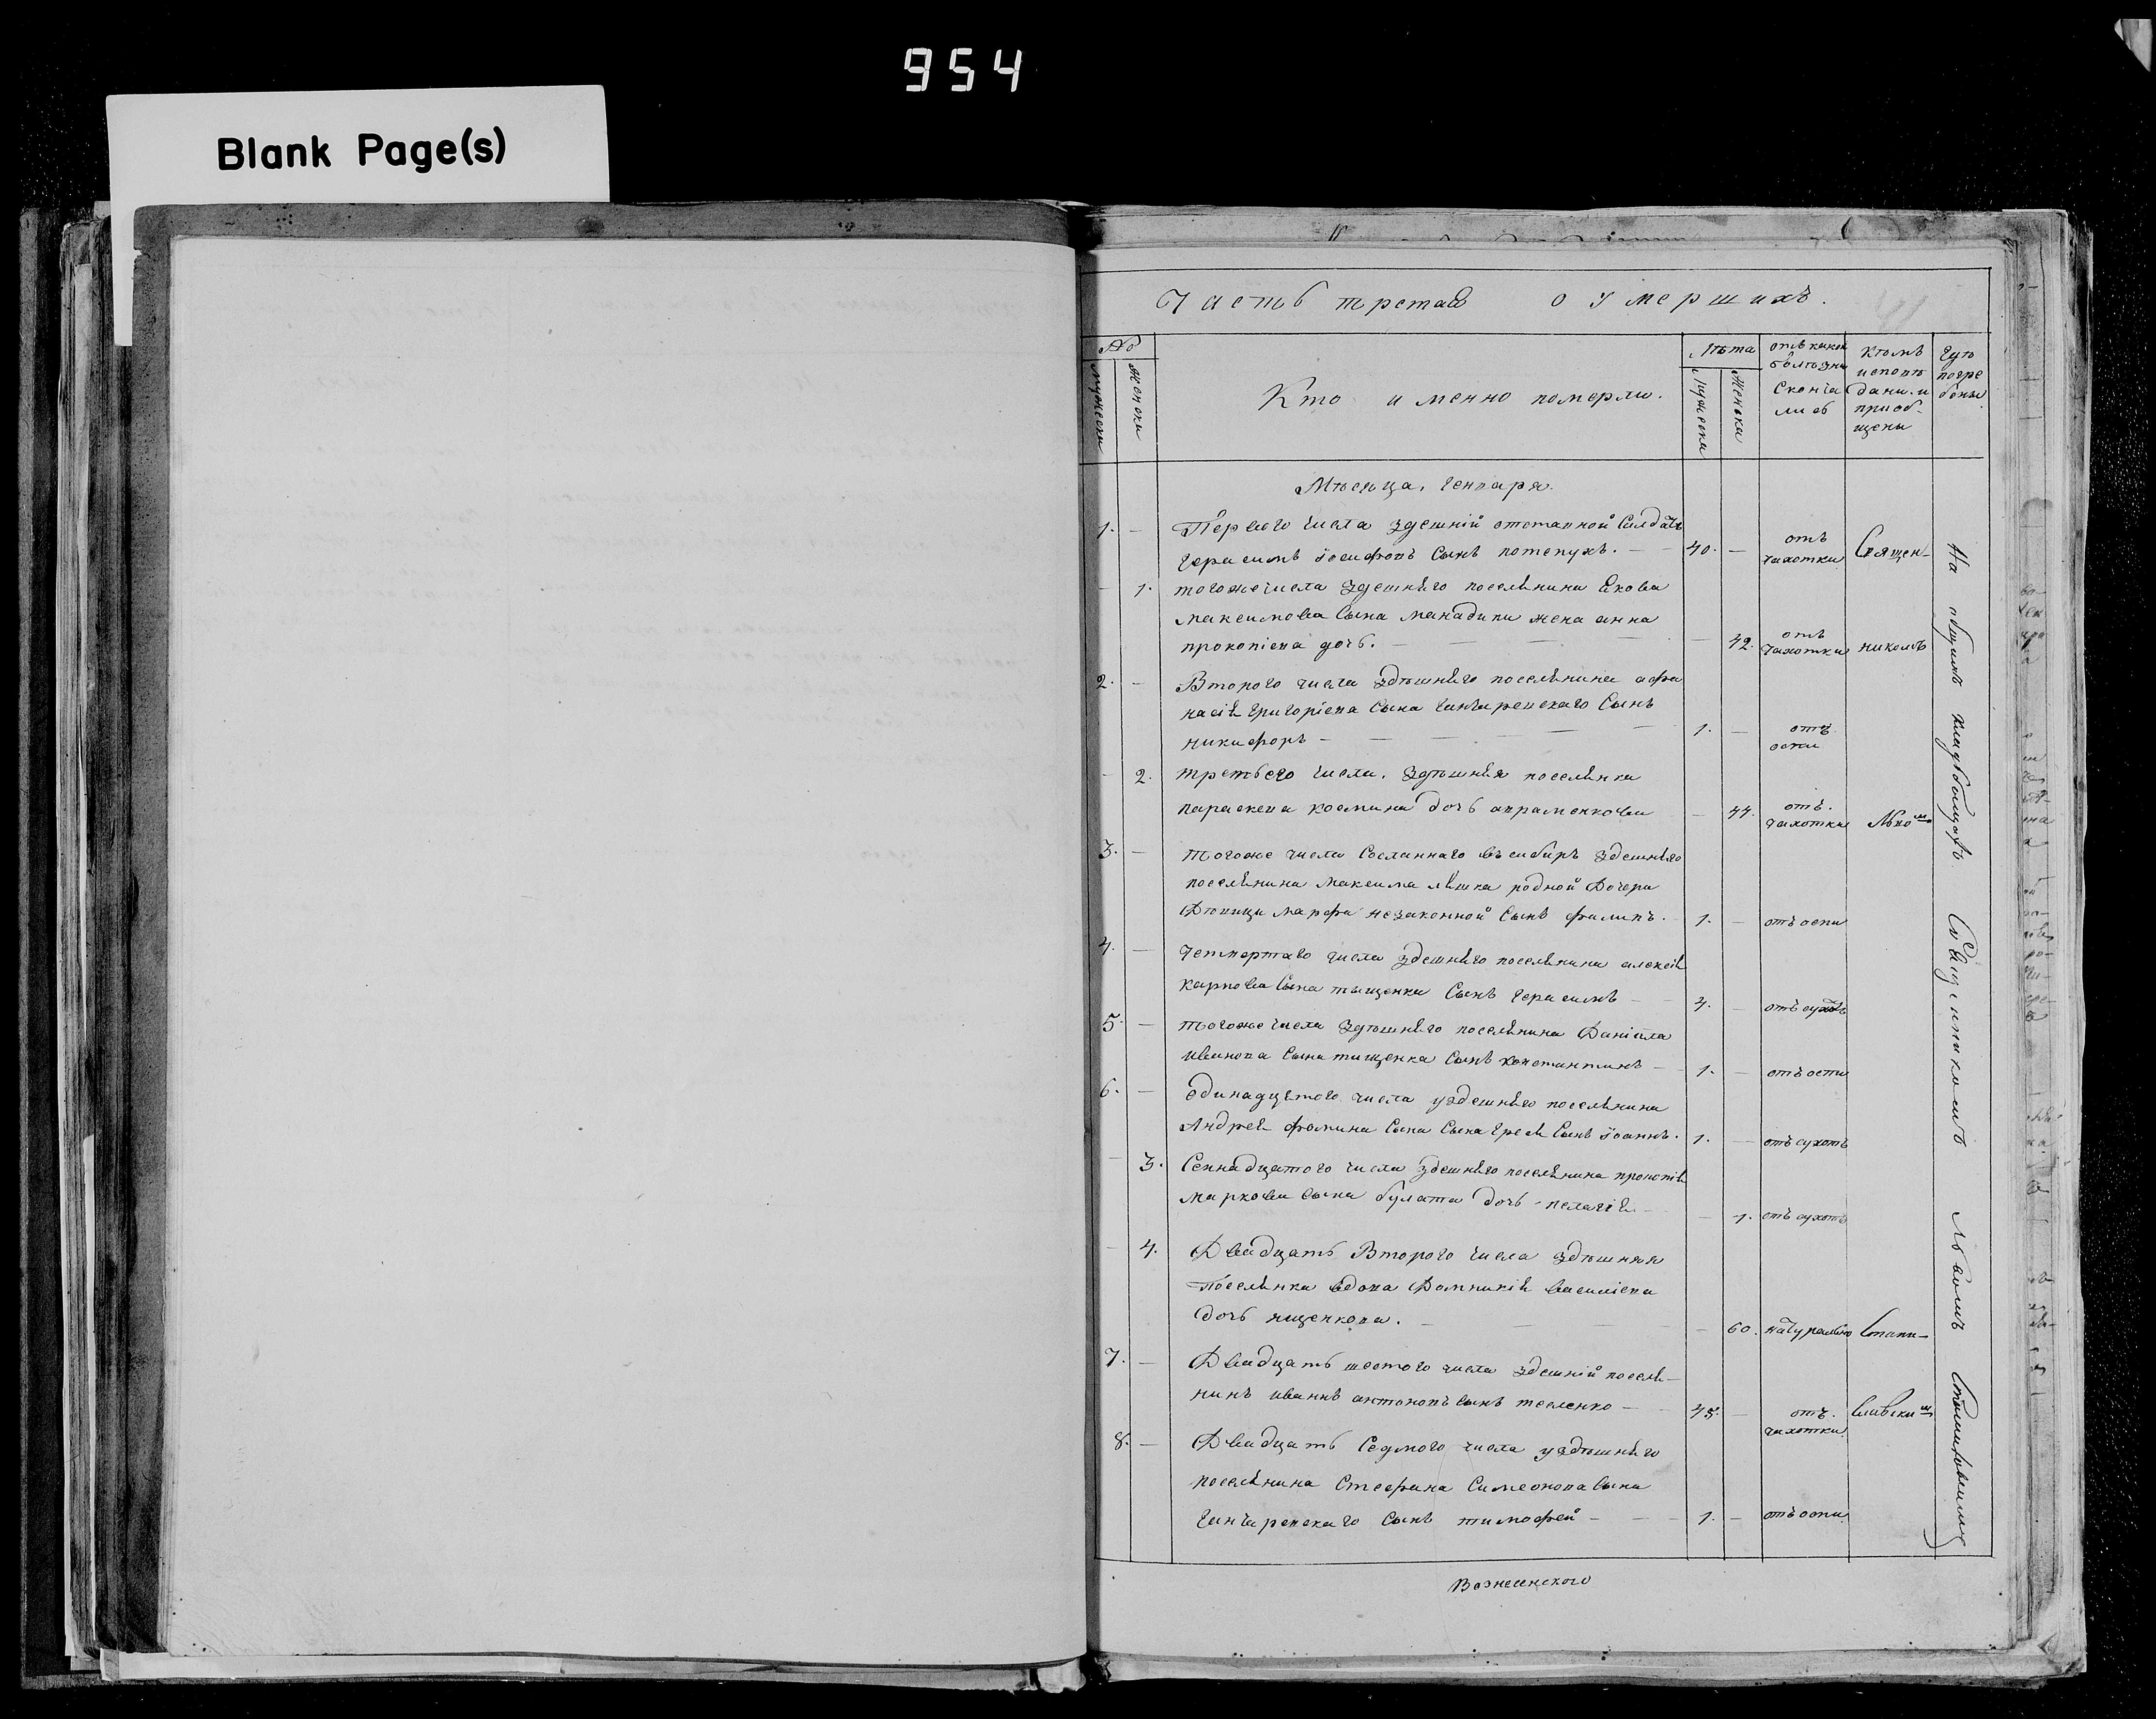 954
Blank Page(s)
Часть третая о умершихъ.
№
мужески
женски
Кто именно померли.
Лѣта
мужески
женски
отъ какой
болѣзни
сконча
лись
кѣмъ
исповѣ
даны и
приоб-
щены
гдѣ
погре
бены
Мѣсяца, Генваря.
1. — Первого числа здешній отставной солдатъ
Герасимъ Іосифовъ сынъ потепухъ. — 40. — отъ чахотки Священ-
— 1. тогоже числа здешнего поселянина Якова
максимова сына манадики жена анна
прокопіева дочь. — — 42. отъ чахотки никомъ
2. — Второго числа здѣшнего поселянина афа
насія григоріева сына гончаревскаго сынъ
никифоръ — 1. — отъ оспи
— 2. третьего числа, здѣшняя поселянка
параскева космина дочь авраменкова — 44. отъ чахотки Львом
3. — тогоже числа сосланнаго въ сибирь здешнего
поселянина максима ляшка родной дочери
дѣвици марфи незаконной сынъ филипъ. 1. — отъ оспи
4. — четвертаго числа здешнего поселянина алексія
карпова сына тищенка сынъ герасимъ — 4. — отъ сухотъ
5. — тогоже числа здѣшнего поселянина Даніила
иванова сына тищенка сынъ константинъ — 1. — отъ оспи
6. — одинадцятого числа уздешнего поселянина
Андрея фомина сына сына сынъ іоаннъ. 1. — отъ сухотъ
— 3. Семнадцатого числа здешнего поселянина прокопія
маркова сына булата дочь пелагія — — 1. отъ сухотъ
— 4. Двадцать Второго числа здѣшняя
Поселянка вдова Домникія василіева
дочь ященкова. — — 60. натурально Стани-
7. — Двадцать шестого числа здешній поселя-
нинъ иванъ антоновъ сынъ тесленко — 45. — отъ чахотки славским
8. — Двадцать седмого числа уздѣшнего
поселянина Стефана Симеонова сына
гончаревскаго сынъ тимофей — 1. — отъ оспи
На общемъ кладбищѣ Священникомъ Львомъ Станиславскимъ
Вознесенского